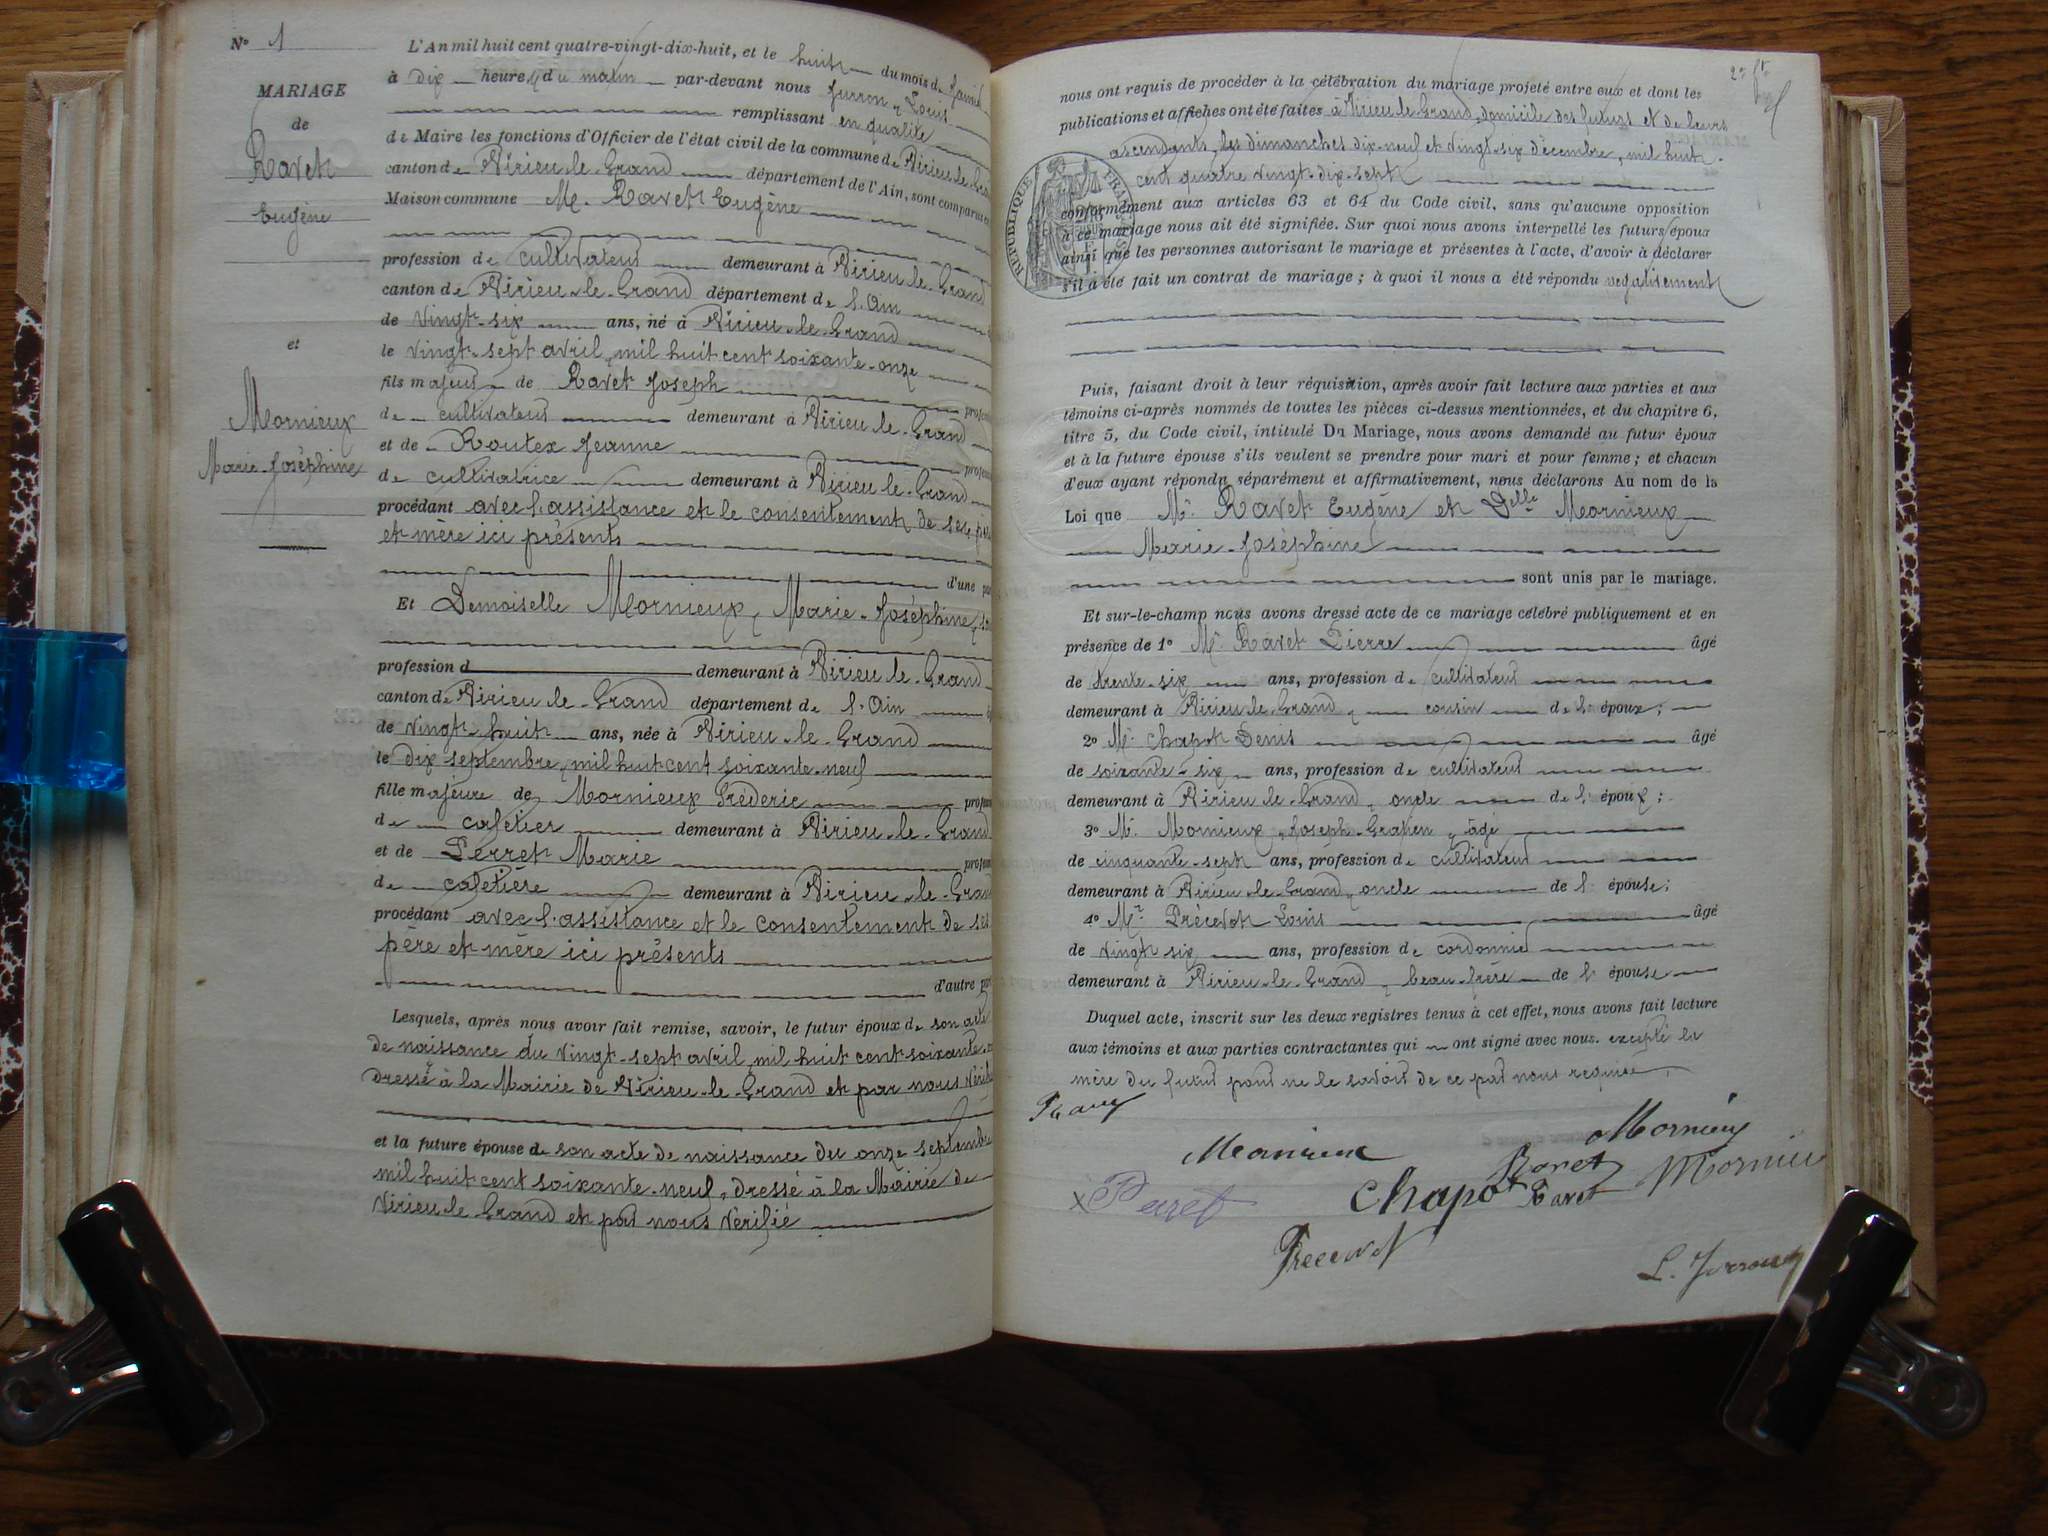 N° 1
MARIAGE
de
Ravet
Eugène
et
Mornieux
Marie-Joséphine
L'An mil huit cent quatre-vingt-dix-huit, et le huit du mois de
à dix heures du matin par-devant nous Juron, Louis
remplissant en qualité
de Maire les fonctions d'Officier de l'état civil de la commune de Virieu-le-
canton de Virieu-le-Grand département de l'Ain, sont comparus
Maison commune M. Ravet Eugène
profession de cultivateur demeurant à Virieu-le-Grand
canton de Virieu-le-Grand département de l'Ain
de vingt-six ans, né à Virieu-le-Grand
le vingt-sept avril, mil huit cent soixante-onze
fils majeur de Ravet Joseph
de cultivateur demeurant à Virieu-le-Grand
et de Routex Jeanne
de cultivatrice demeurant à Virieu-le-Grand
procédant avec l'assistance et le consentement de ses
et mère ici présents
d'une
Et Demoiselle Mornieux, Marie-Joséphine,
profession d demeurant à Virieu-le-Grand
canton de Virieu-le-Grand département de l'Ain
de vingt-huit ans, née à Virieu-le-Grand
le dix septembre, mil huit cent soixante-neuf
fille majeure de Mornieux Fréderic
de cafetier demeurant à Virieu-le-Grand
et de Perret Marie
de cafetière demeurant à Virieu-le-Grand
procédant avec l'assistance et le consentement de ses
père et mère ici présents
d'autre
Lesquels, après nous avoir fait remise, savoir, le futur époux de son acte
de naissance du vingt-sept avril, mil huit cent soixante-
dressé à la Mairie de Virieu-le-Grand et par nous
et la future épouse de son acte de naissance du onze septembre
mil huit cent soixante-neuf, dressé à la Mairie de
Virieu-le-Grand et par nous vérifié
nous ont requis de procéder à la célébration du mariage projeté entre eux et dont les
publications et affiches ont été faites à Virieu-le-Grand, domicile des futurs et de leurs
ascendants, les dimanches dix-neuf et vingt-six décembre, mil huit
cent quatre vingt-dix-sept
RÉPUBLIQUE FRANÇAISE
conformément aux articles 63 et 64 du Code civil, sans qu'aucune opposition
à ce mariage nous ait été signifiée. Sur quoi nous avons interpellé les futurs époux
ainsi que les personnes autorisant le mariage et présentes à l'acte, d'avoir à déclarer
s'il a été fait un contrat de mariage ; à quoi il nous a été répondu négativement
Puis, faisant droit à leur réquisition, après avoir fait lecture aux parties et aux
témoins ci-après nommés de toutes les pièces ci-dessus mentionnées, et du chapitre 6,
titre 5, du Code civil, intitulé Du Mariage, nous avons demandé au futur époux
et à la future épouse s'ils veulent se prendre pour mari et pour femme ; et chacun
d'eux ayant répondu séparément et affirmativement, nous déclarons Au nom de la
Loi que Mr Ravet Eugène et Delle Mornieux
Marie-Joséphine
sont unis par le mariage.
Et sur-le-champ nous avons dressé acte de ce mariage célébré publiquement et en
présence de 1° Mr Ravet Pierre âgé
de trente-six ans, profession de cultivateur
demeurant à Virieu-le-Grand, cousin de l' époux ;
2° Mr Chapot Denis âgé
de soixante-six ans, profession de cultivateur
demeurant à Virieu-le-Grand, oncle de l' époux ;
3° Mr Mornieux, Joseph-Gratien, âgé
de cinquante-sept ans, profession de cultivateur
demeurant à Virieu-le-Grand, oncle de l' épouse ;
4° Mr Précevot Louis âgé
de vingt six ans, profession de cordonnier
demeurant à Virieu-le-Grand, beau-frère de l' épouse
Duquel acte, inscrit sur les deux registres tenus à cet effet, nous avons fait lecture
aux témoins et aux parties contractantes qui ont signé avec nous. excepté la
mère du futur pour ne le savoir de ce par nous requise.
Mornieux
Mornieux
Ravet
Mornieu
Perret
Chapot
Ravet